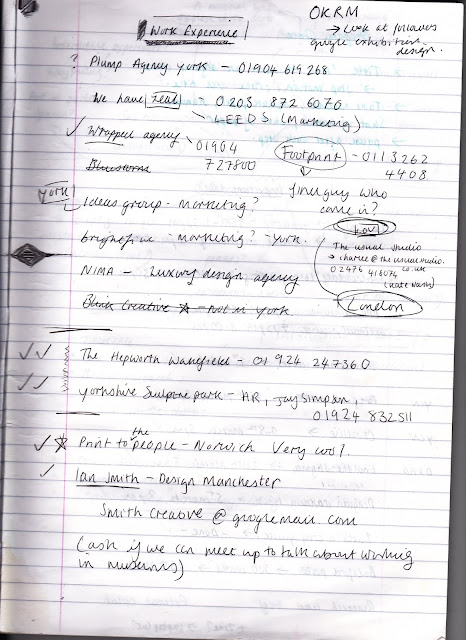 Work Experience
OKRM
→ Look at followers
google exhibition
design.
? Plump Agency York - 01904 619268
We have Zeal - 0203 872 6070
LEEDS (Marketing)
✓ Wrapped agency 01904
727800
Footprint - 0113 262
4408
↓
finer guy who
came in?
York
Ideas group - marketing?
brightfive - marketing? - York.
The usual studio
→ charlie@theusualstudio.
co.uk
02476 418074
(nate wash)
London
NIMA - Luxury design agency
Blink Creative ☆ - Not in York
✓✓ The Hepworth Wakefield - 01924 247360
✓✓ Yorkshire Sculpture park - HR, Jay Simpson,
01924 832511
✓☆ Print to the people - Norwich Very cool.
✓ Ian Smith - Design Manchester
Smith Creative @ googlemail.com
(ask if we can meet up to talk about working
in museums)